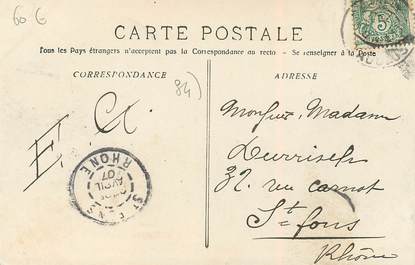 60 G
5
CARTE POSTALE
Tous les Pays étrangers n'acceptent pas la Correspondance au recto - Se renseigner à la Poste
CORRESPONDANCE
ADRESSE
84)
E A
Monsieur, Madame
32. rue carnot
St fons
Rhône
ST FONS
AVRIL
07
RHONE